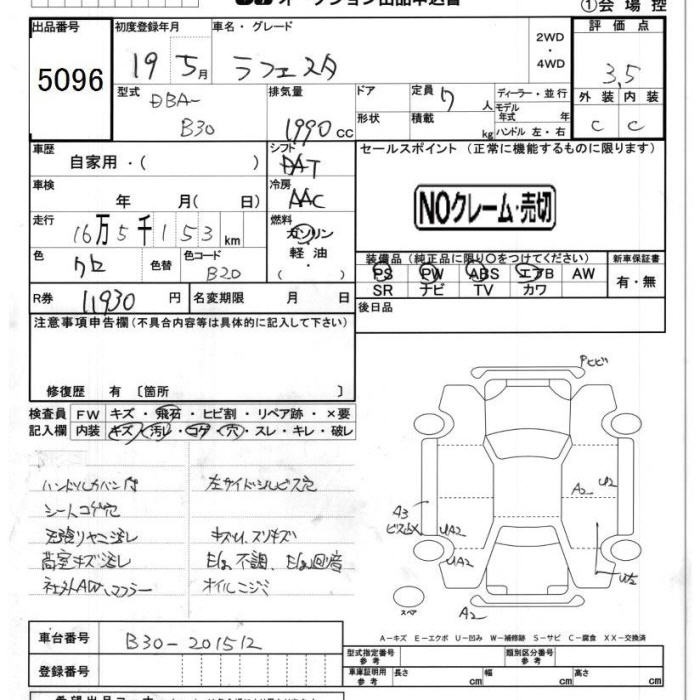 オークション出品申込書
①会場控
出品番号 5096
初度登録年月 19 5月
車名・グレード ラフェスタ
2WD・4WD
評価点 3.5
外装 内装
C C
型式 DBA-
B30
排気量 1990 cc
ドア
形状
定員 7 人
積載 kg
ディーラー・並行
モデル年式 年
ハンドル 左・右
車歴 自家用・( )
シフト DAT
セールスポイント (正常に機能するものに限ります)
車検 年 月( 日)
冷房 AAC
NOクレーム・売切
走行 16万5千153km
燃料 ガソリン
軽油
・( )
色 クロ 色替
色コード B20
装備品 (純正品に限り○をつけてください)
新車保証書
PS PW ABS エアB AW
有・無
SR ナビ TV カワ
R券 11930 円
名変期限 月 日
後日品
注意事項申告欄 (不具合内容等は具体的に記入して下さい)
修復歴 有 〔箇所 〕
検査員 FW キズ・飛石・ヒビ割・リペア跡・×要
記入欄 内装 キズ・汚レ・コゲ・穴・スレ・キレ・破レ
ハンドルカバン付
左サイドシルビス穴
シートコゲ穴
キズU、スリキズ
荷室キズ汚レ
Eg不調、Eg回音
社外AW、マフラー
オイルニジミ
Pヒビ
A2 U2
A3
ビス欠×
UA2
UA2
U2
スペア
A2
A-キズ E-エクボ U-凹み W-補修跡 S-サビ C-腐食 XX-交換済
車台番号 B30-201512
型式指定番号 参考
類別区分番号 参考
登録番号
車庫証明用 参考 長さ 幅 高さ
cm cm cm
希望出品コーナー